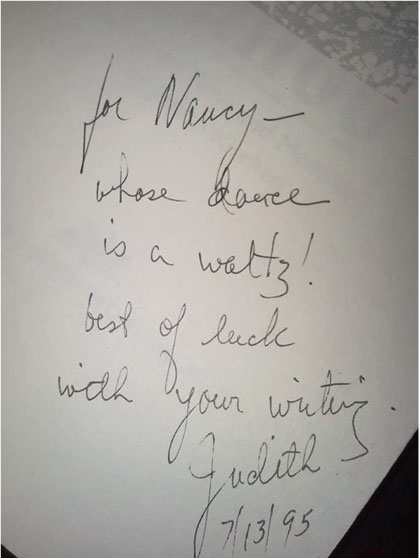 for Nancy—
whose dance
is a waltz!
best of luck
with your writing.
Judith
7/13/95